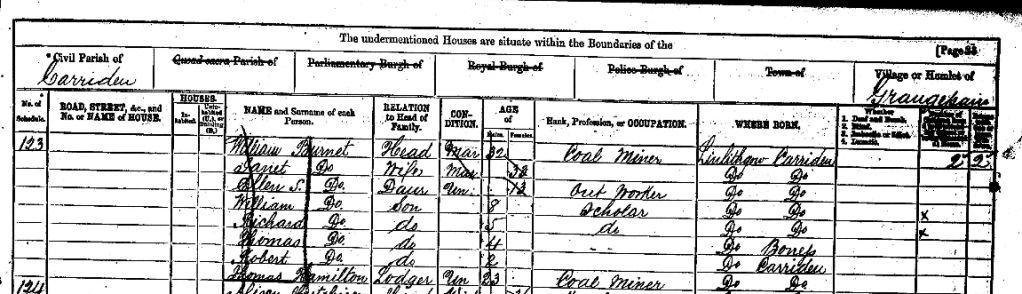 The undermentioned Houses are situate within the Boundaries of the
[Page 33
Civil Parish of Quoad sacra Parish of Parliamentary Burgh of Royal Burgh of Police Burgh of Town of Village or Hamlet of
Carriden Grangepans
No. of Schedule. ROAD, STREET, &c., and No. or NAME of HOUSE. HOUSES. NAME and Surname of each Person. RELATION to Head of Family. CONDITION. AGE of Males. Females. Rank, Profession, or OCCUPATION. WHERE BORN. Whether 1. Deaf and Dumb. 2. Blind. 3. Imbecile or Idiot. 4. Lunatic.
123 William Burnet Head Mar 32 Coal Miner Linlithgow Carriden 2 2
Janet Do Wife 32 Do Do
Ellen S. Do Daur Un 12 Out Worker Do Do
William Do Son 8 Scholar Do Do x
Richard Do do 5 do Do Do x
Thomas Do do 4 Do Boness
Robert Do do 2 Do Carriden
Thomas Hamilton Lodger Un 23 Coal Miner Do Do
124